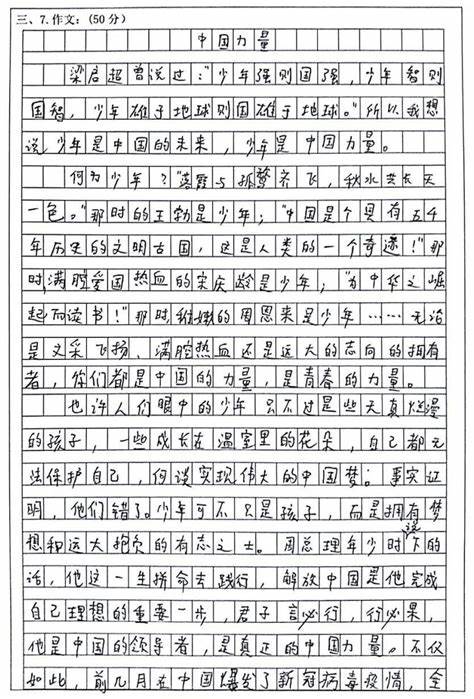 三、7.作文：（50分）
中国力量
梁启超曾说过：“少年强则国强，少年智则
国智，少年雄于地球则国雄于地球。”所以我想
说，少年是中国的未来，少年是中国力量。
何为少年？“落霞与孤鹜齐飞，秋水共长天
一色。”那时的王勃是少年；“中国是个具有五千
年历史的文明古国，这是人类的一个奇迹！”那
时满腔爱国热血的宋庆龄是少年；“为中华之崛
起而读书！”那时稚嫩的周恩来是少年……无论
是文采飞扬、满腔热血还是远大的志向的拥有
者，你们都是中国的力量，是青春的力量。
也许人们眼中的少年只不过是些天真烂漫
的孩子，一些成长在温室里的花朵，自己都无
法保护自己，何谈实现伟大的中国梦。事实证
明，他们错了。少年可不只是孩子，而是拥有梦
想和远大抱负的有志之士。周总理年少时说下的
话，他这一生拼命去践行，解放中国是他完成
自己理想的重要一步，君子言必行，行必果，
他是中国的领导者，是真正的中国力量。不仅
如此，前几月在中国爆发了新冠病毒疫情，全